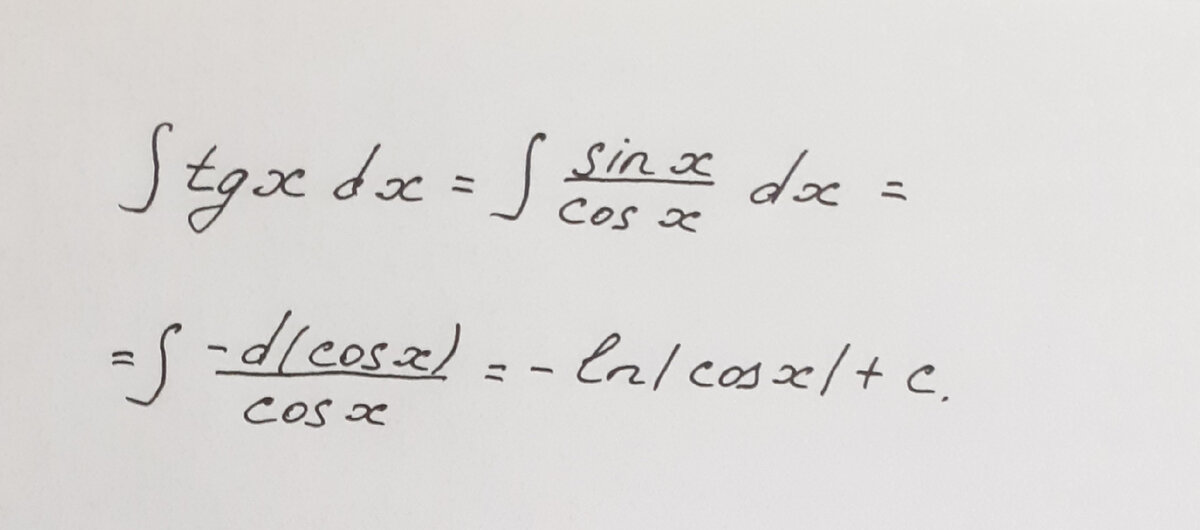 ∫ tgx dx = ∫ sin x / cos x dx =
= ∫ -d(cosx) / cosx = - ln|cosx| + c.